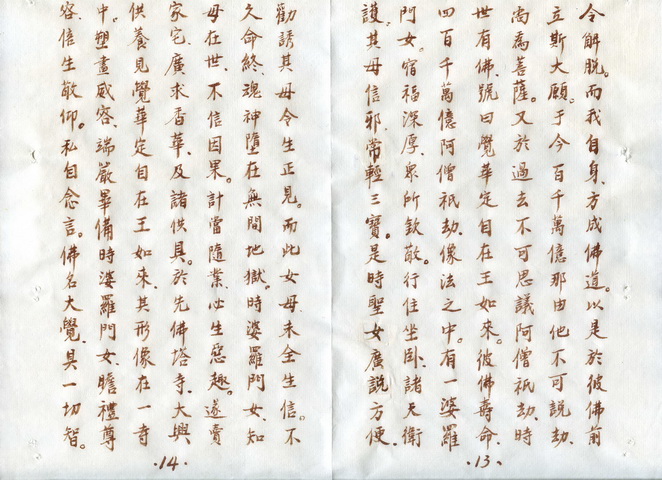 令解脫。而我自身、方成佛道。以是於彼佛前
立斯大願。于今百千萬億那由他不可說劫、
尚為菩薩。又於過去不可思議阿僧祇劫、時
世有佛、號曰覺華定自在王如來。彼佛壽命、
四百千萬億阿僧祇劫。像法之中。有一婆羅
門女。宿福深厚、眾所欽敬。行住坐卧、諸天衛
護。其母信邪、常輕三寶。是時聖女廣說方便、
·13·
勸誘其母、令生正見。而此女母、未全生信。不
久命終、魂神墮在無間地獄。時婆羅門女、知
母在世、不信因果。計當隨業、必生惡趣。遂賣
家宅、廣求香華、及諸供具。於先佛塔寺、大興
供養。見覺華定自在王如來、其形像在一寺
中。塑畫威容、端嚴畢備。時婆羅門女、瞻禮尊
容、倍生敬仰。私自念言。佛名大覺、具一切智。
·14·